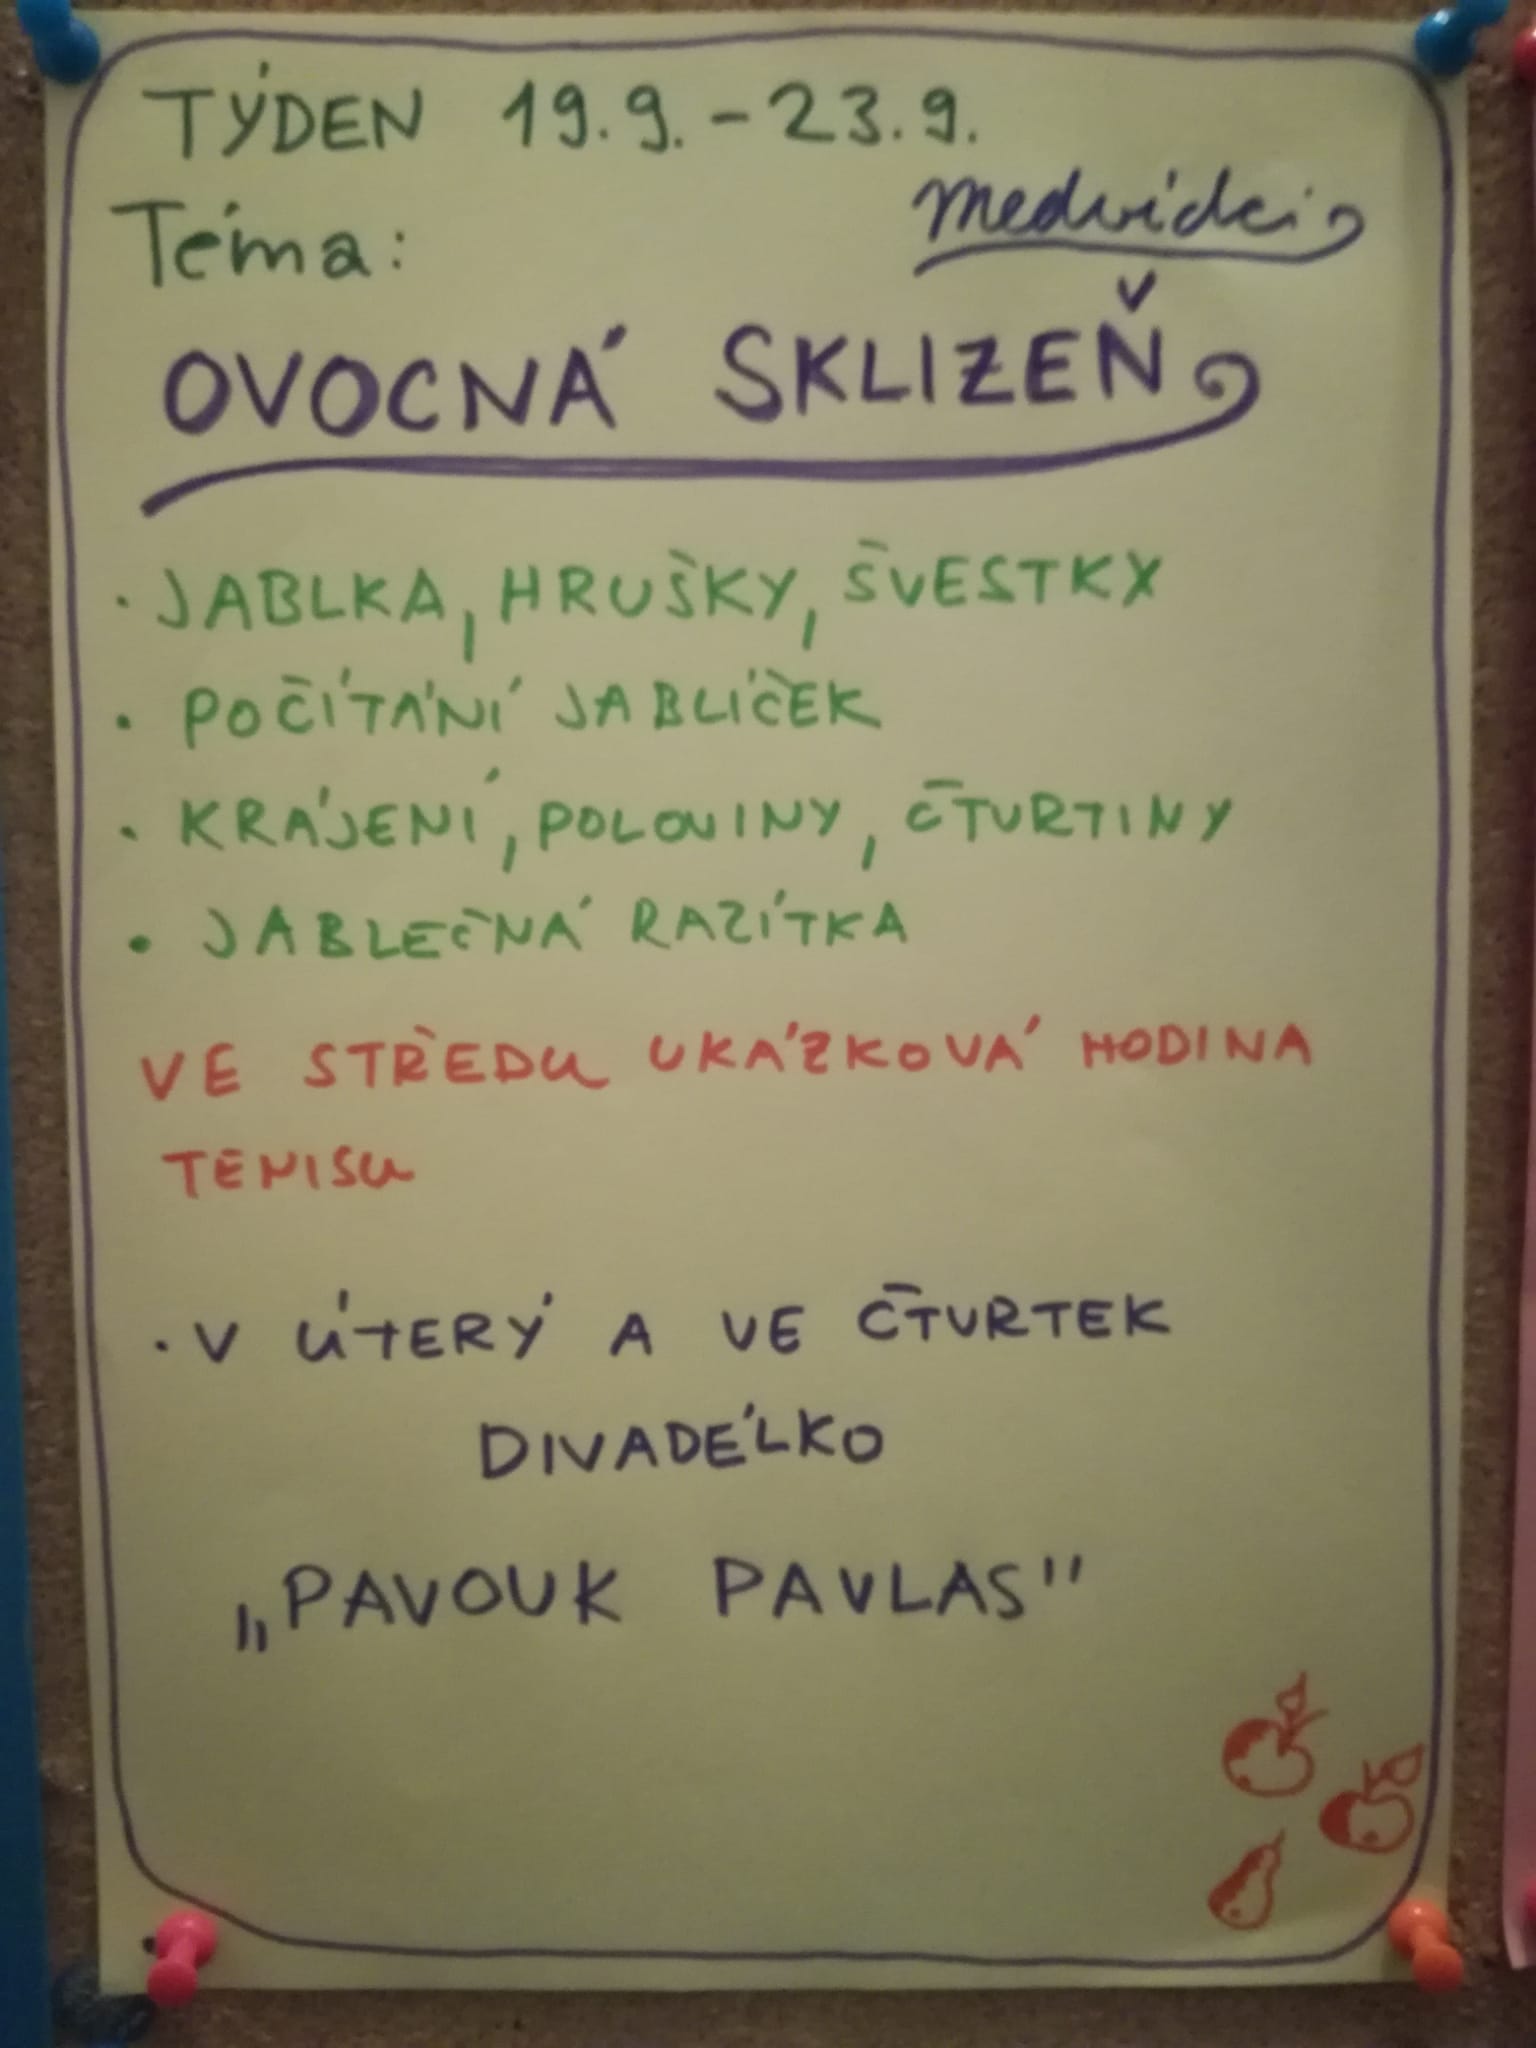 TÝDEN 19.9.-23.9.
medvídci
Téma:
OVOCNÁ SKLIZEŇ
· JABLKA, HRUŠKY, ŠVESTKY
· POČÍTÁNÍ JABLÍČEK
· KRÁJENÍ, POLOVINY, ČTVRTINY
· JABLEČNÁ RAZÍTKA
VE STŘEDU UKÁZKOVÁ HODINA
TENISU
· V ÚTERÝ A VE ČTVRTEK
DIVADÉLKO
„PAVOUK PAVLAS"